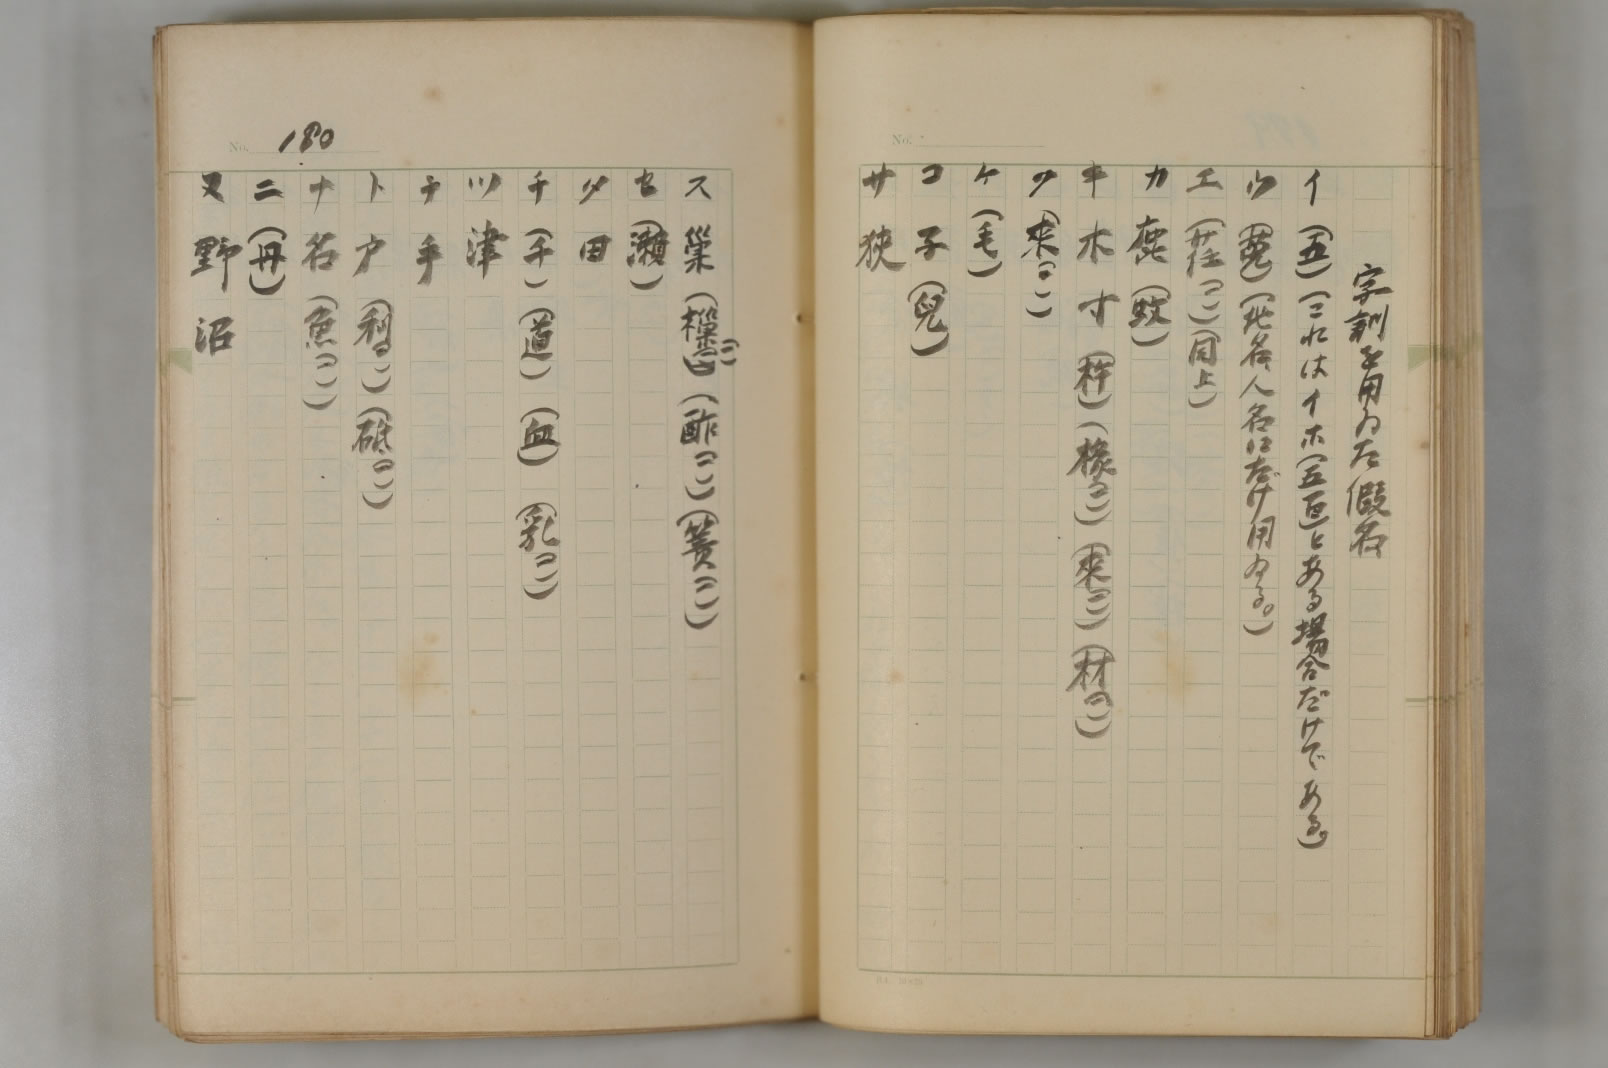 字訓を用ゐた假名
イ (五) (これはイホ(五百)とある場合だけである。)
ウ (菟) (地名、人名にだけ用ゐる。)
エ (荏(コ)) (同上)
カ 鹿 (蚊)
キ 木 寸 (杵) (橡(コ)) (來(コ)) (材(コ))
ク (來(コ))
ケ (毛)
コ 子 (兒)
サ 狹
No. 180
ス 巢 (樔(コ)) (酢(コ)) (簀(コ))
セ (瀬)
タ 田
チ (千) (道) (血) (乳(コ))
ツ 津
テ 手
ト 戸 (利(コ)) (砥(コ))
ナ 名 (魚(コ))
ニ (丹)
ヌ 野 沼
No.